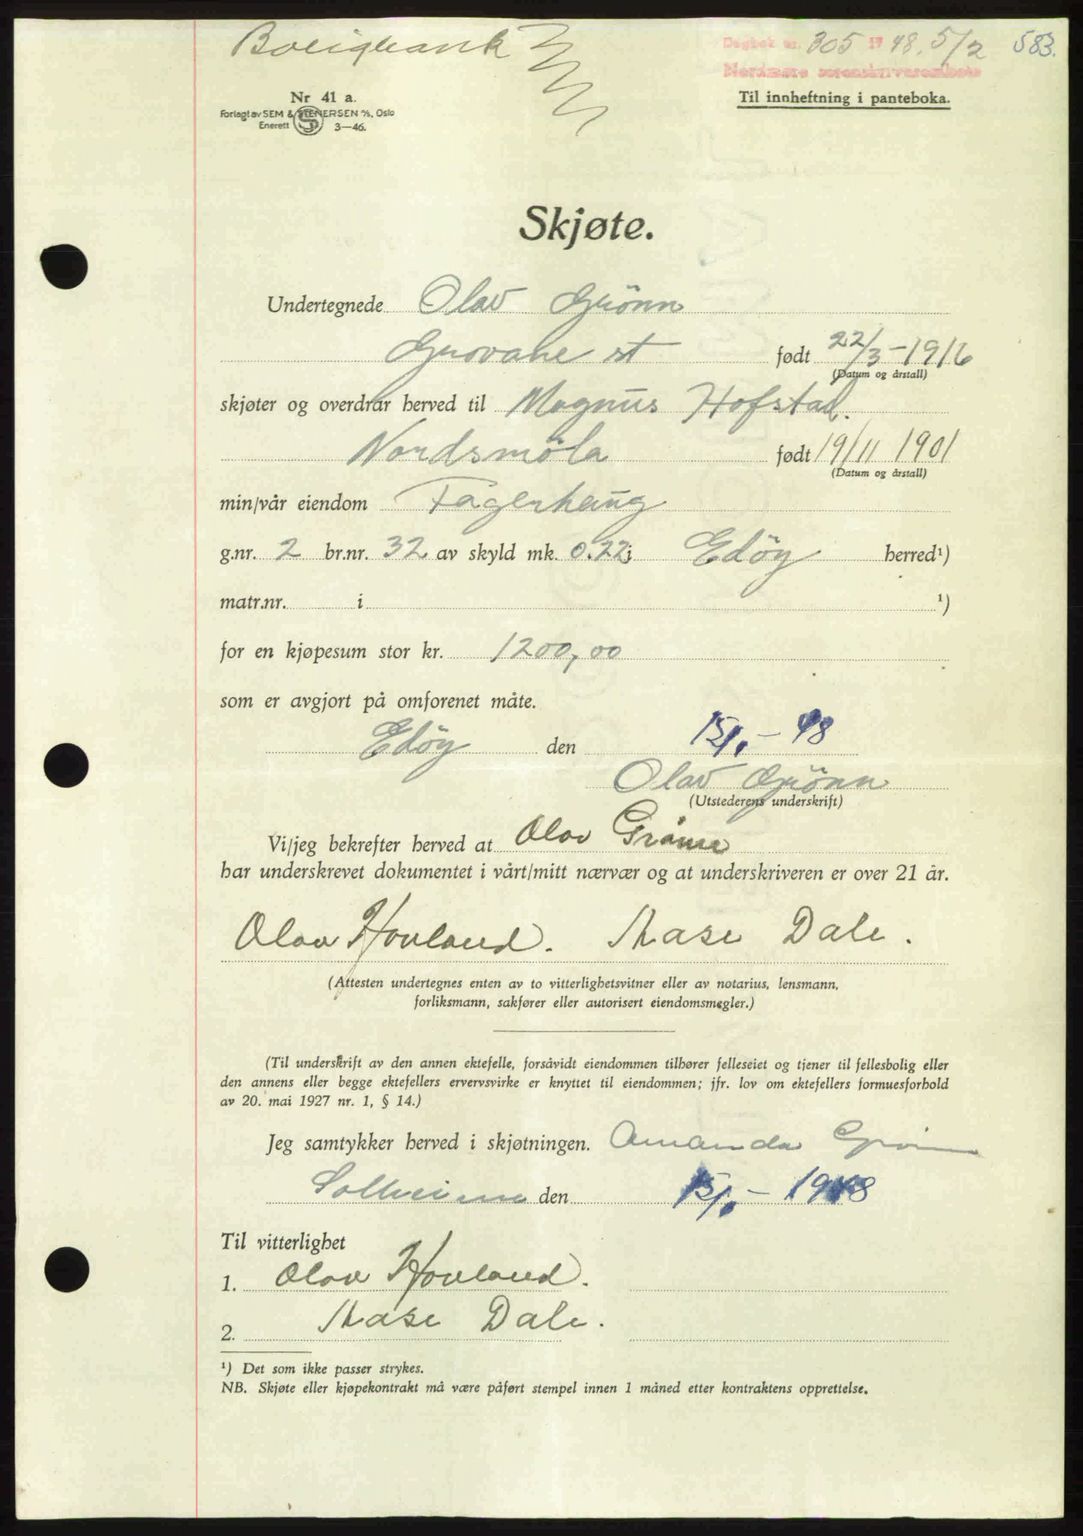 Boligbank
Dagbok nr. 305 1948. 5/2 583.
Nordmøre sorenskriverembete
Nr 41 a.
Forlagt av SEM & STENERSEN A/S, Oslo
Enerett 3—46.
Til innheftning i panteboka.
Skjøte.
Undertegnede Olav Grönn
Grovane st født 22/3-1916
(Datum og årstall)
skjøter og overdrar herved til Magnus Hofstad.
Nordsmöla født 19/11 1901
(Datum og årstall)
min/vår eiendom Fagerhaug
g.nr. 2 br.nr. 32 av skyld mk. 0.22 i Edöy herred¹)
matr.nr. i ¹)
for en kjøpesum stor kr. 1200,00
som er avgjort på omforenet måte.
Edöy den 15/1 - 48
Olav Grönn
(Utstederens underskrift)
Vi/jeg bekrefter herved at Olav Grönn
har underskrevet dokumentet i vårt/mitt nærvær og at underskriveren er over 21 år.
Olav Hovland. Aase Dale.
(Attesten undertegnes enten av to vitterlighetsvitner eller av notarius, lensmann,
forliksmann, sakfører eller autorisert eiendomsmegler.)
(Til underskrift av den annen ektefelle, forsåvidt eiendommen tilhører felleseiet og tjener til fellesbolig eller
den annens eller begge ektefellers ervervsvirke er knyttet til eiendommen; jfr. lov om ektefellers formuesforhold
av 20. mai 1927 nr. 1, § 14.)
Jeg samtykker herved i skjøtningen. Amanda Grönn
den 15/1 - 1948
Til vitterlighet
1. Olav Hovland.
2. Aase Dale.
¹) Det som ikke passer strykes.
NB. Skjøte eller kjøpekontrakt må være påført stempel innen 1 måned etter kontraktens opprettelse.